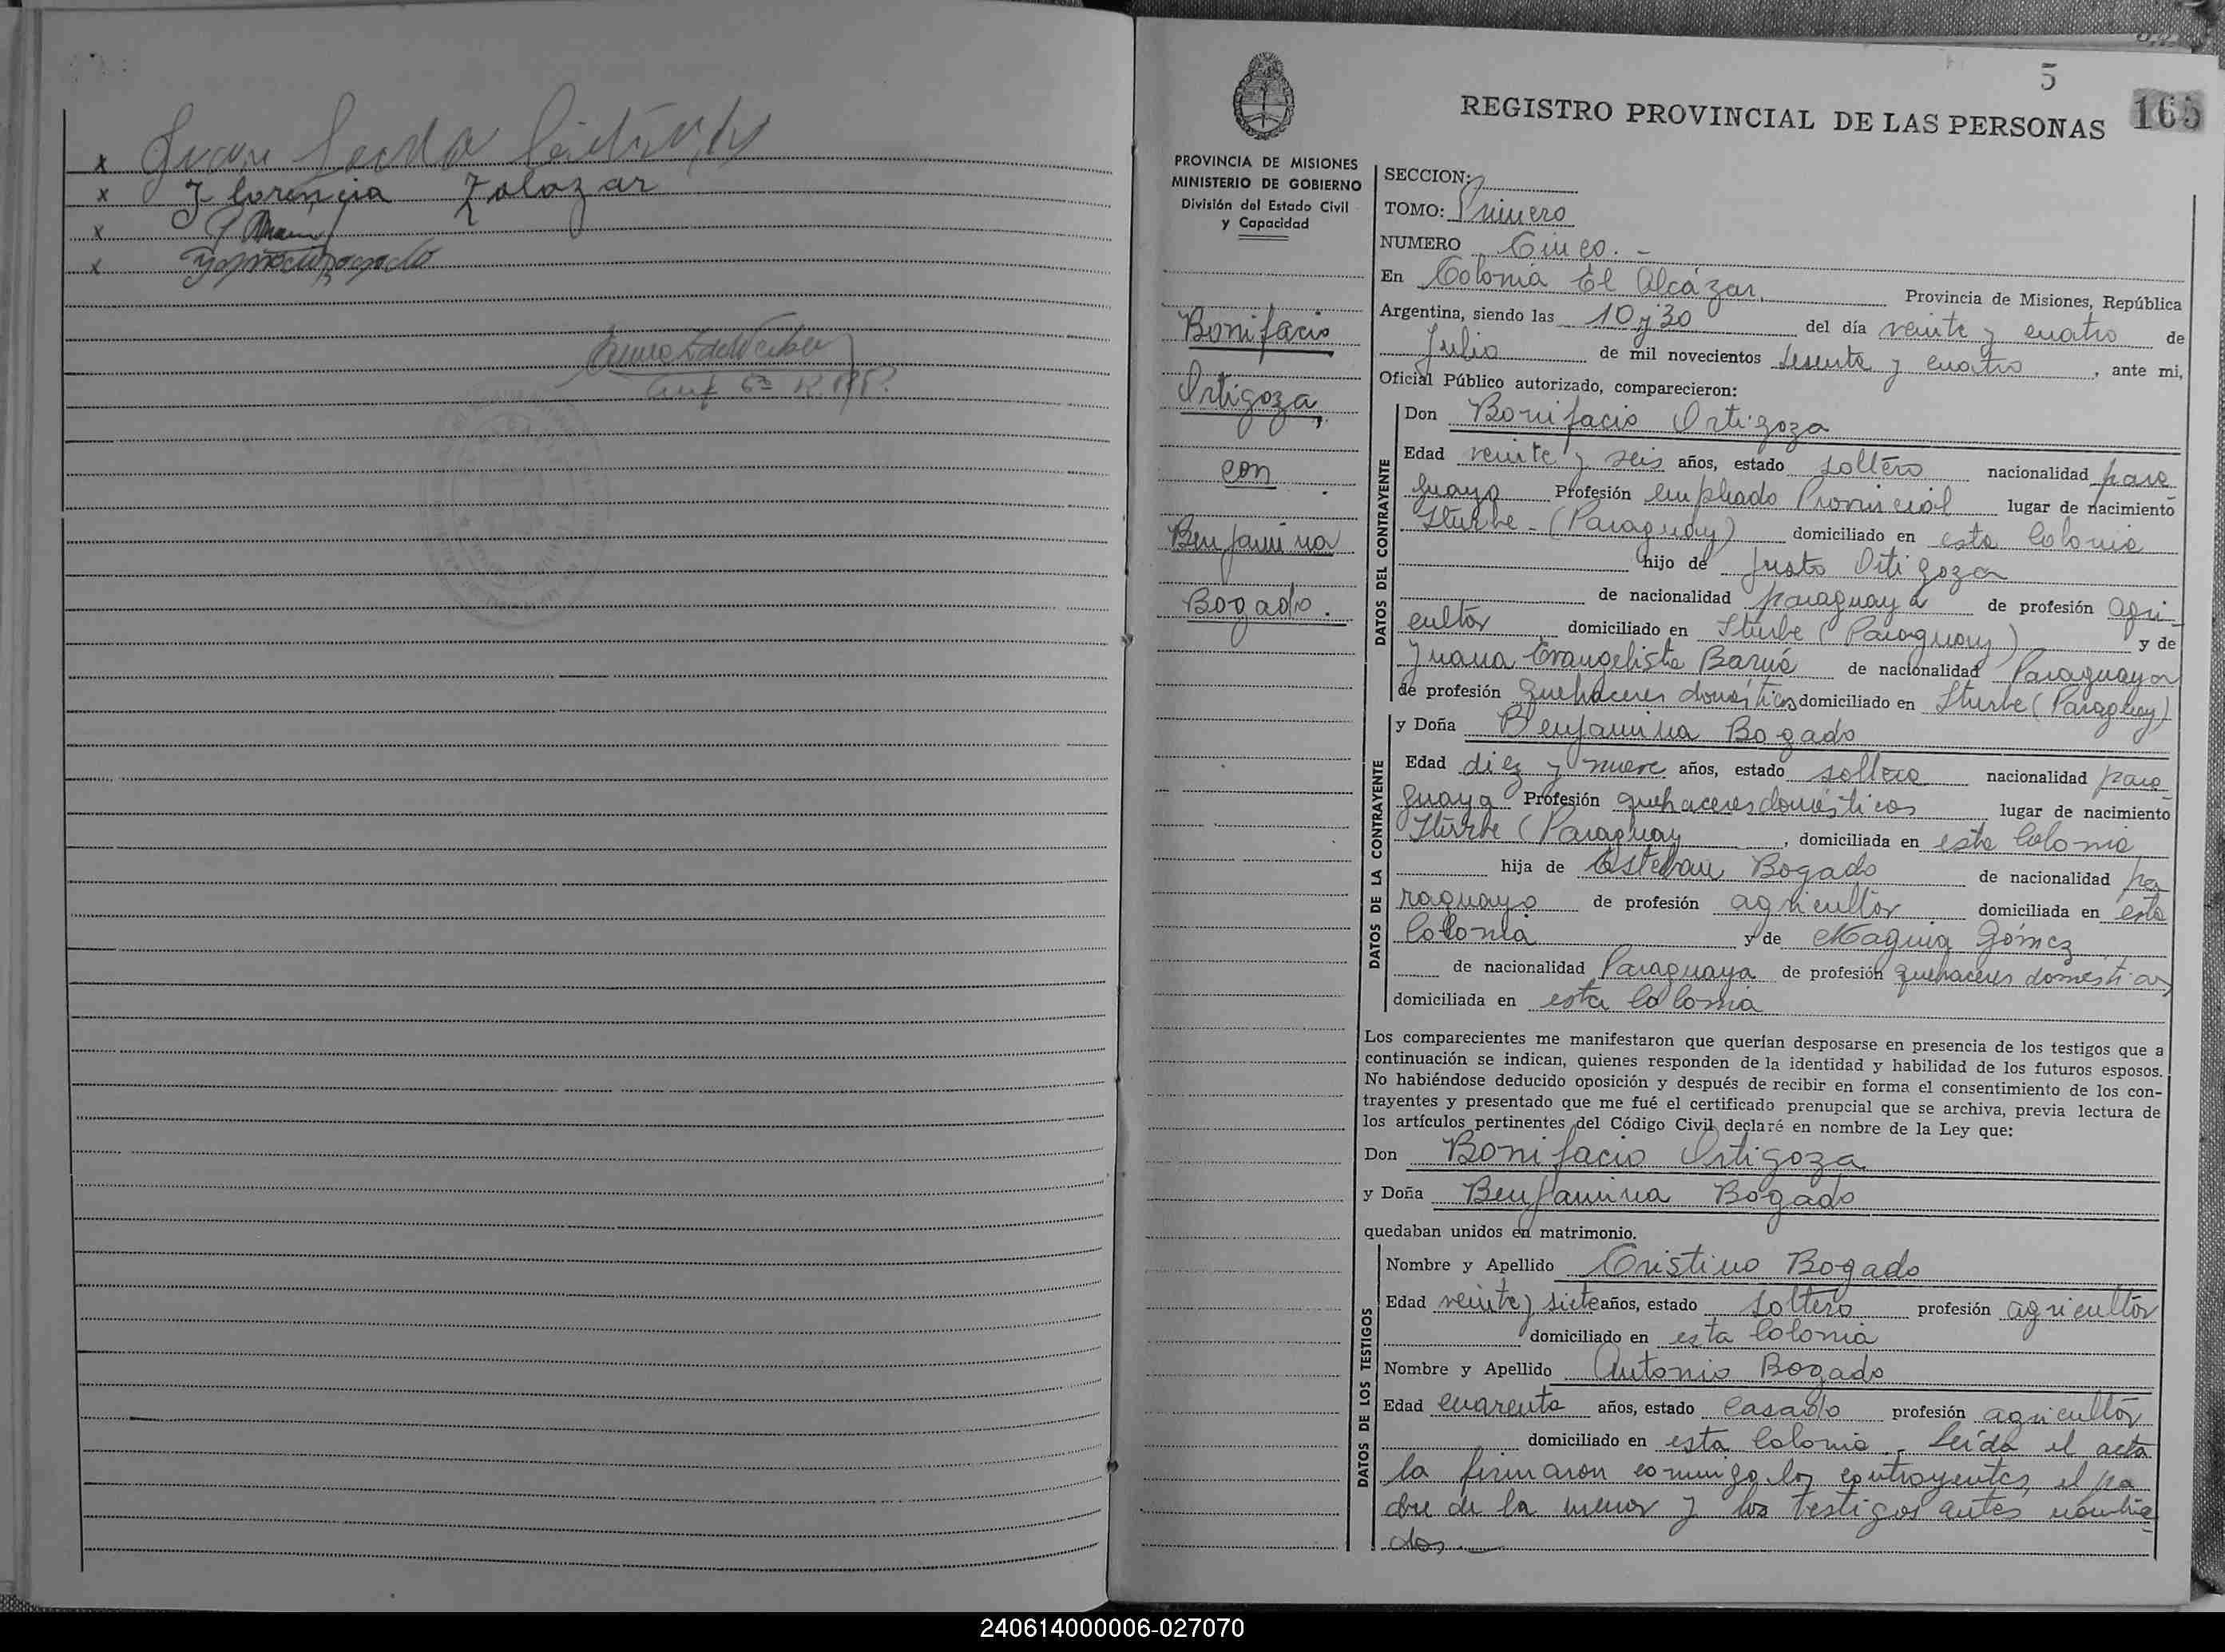 Florencia Zalazar
5
165
REGISTRO PROVINCIAL DE LAS PERSONAS
PROVINCIA DE MISIONES
MINISTERIO DE GOBIERNO
División del Estado Civil
y Capacidad
Bonifacio
Ortigoza,
con
Benjamina
Bogado.
SECCION:
TOMO: Primero
NUMERO Cinco. -
En Colonia El Alcázar, Provincia de Misiones, República
Argentina, siendo las 10 y 30 del día veinte y cuatro de
Julio de mil novecientos sesenta y cuatro, ante mi,
Oficial Público autorizado, comparecieron:
DATOS DEL CONTRAYENTE
Don Bonifacio Ortigoza
Edad veinte y seis años, estado soltero nacionalidad para
guaya Profesión empleado Provincial lugar de nacimiento
Iturbe - (Paraguay) domiciliado en esta Colonia
hijo de Justo Ortigoza
de nacionalidad paraguaya de profesión agri-
cultor domiciliado en Iturbe (Paraguay) y de
Juana Evangelista Barúa de nacionalidad Paraguaya
de profesión quehaceres domésticos domiciliado en Iturbe (Paraguay)
DATOS DE LA CONTRAYENTE
y Doña Benjamina Bogado
Edad diez y nueve años, estado soltera nacionalidad para
guaya Profesión quehaceres domésticos lugar de nacimiento
Iturbe (Paraguay, domiciliada en esta Colonia
hija de Esteban Bogado de nacionalidad pa
raguayo de profesión agricultor domiciliada en esta
Colonia y de Gómez
de nacionalidad Paraguaya de profesión quehaceres domésticos
domiciliada en esta Colonia
Los comparecientes me manifestaron que querían desposarse en presencia de los testigos que a
continuación se indican, quienes responden de la identidad y habilidad de los futuros esposos.
No habiéndose deducido oposición y después de recibir en forma el consentimiento de los con-
trayentes y presentado que me fué el certificado prenupcial que se archiva, previa lectura de
los artículos pertinentes del Código Civil declaré en nombre de la Ley que:
Don Bonifacio Ortigoza
y Doña Benjamina Bogado
quedaban unidos en matrimonio.
DATOS DE LOS TESTIGOS
Nombre y Apellido Cristino Bogado
Edad veinte y siete años, estado soltero profesión agricultor
domiciliado en esta Colonia
Nombre y Apellido Antonio Bogado
Edad cuarenta años, estado casado profesión agricultor
domiciliado en esta Colonia. Leída el acta
la firmaron conmigo los contrayentes, el pa
dre de la menor y los testigos antes nombra-
dos.
240614000006-027070